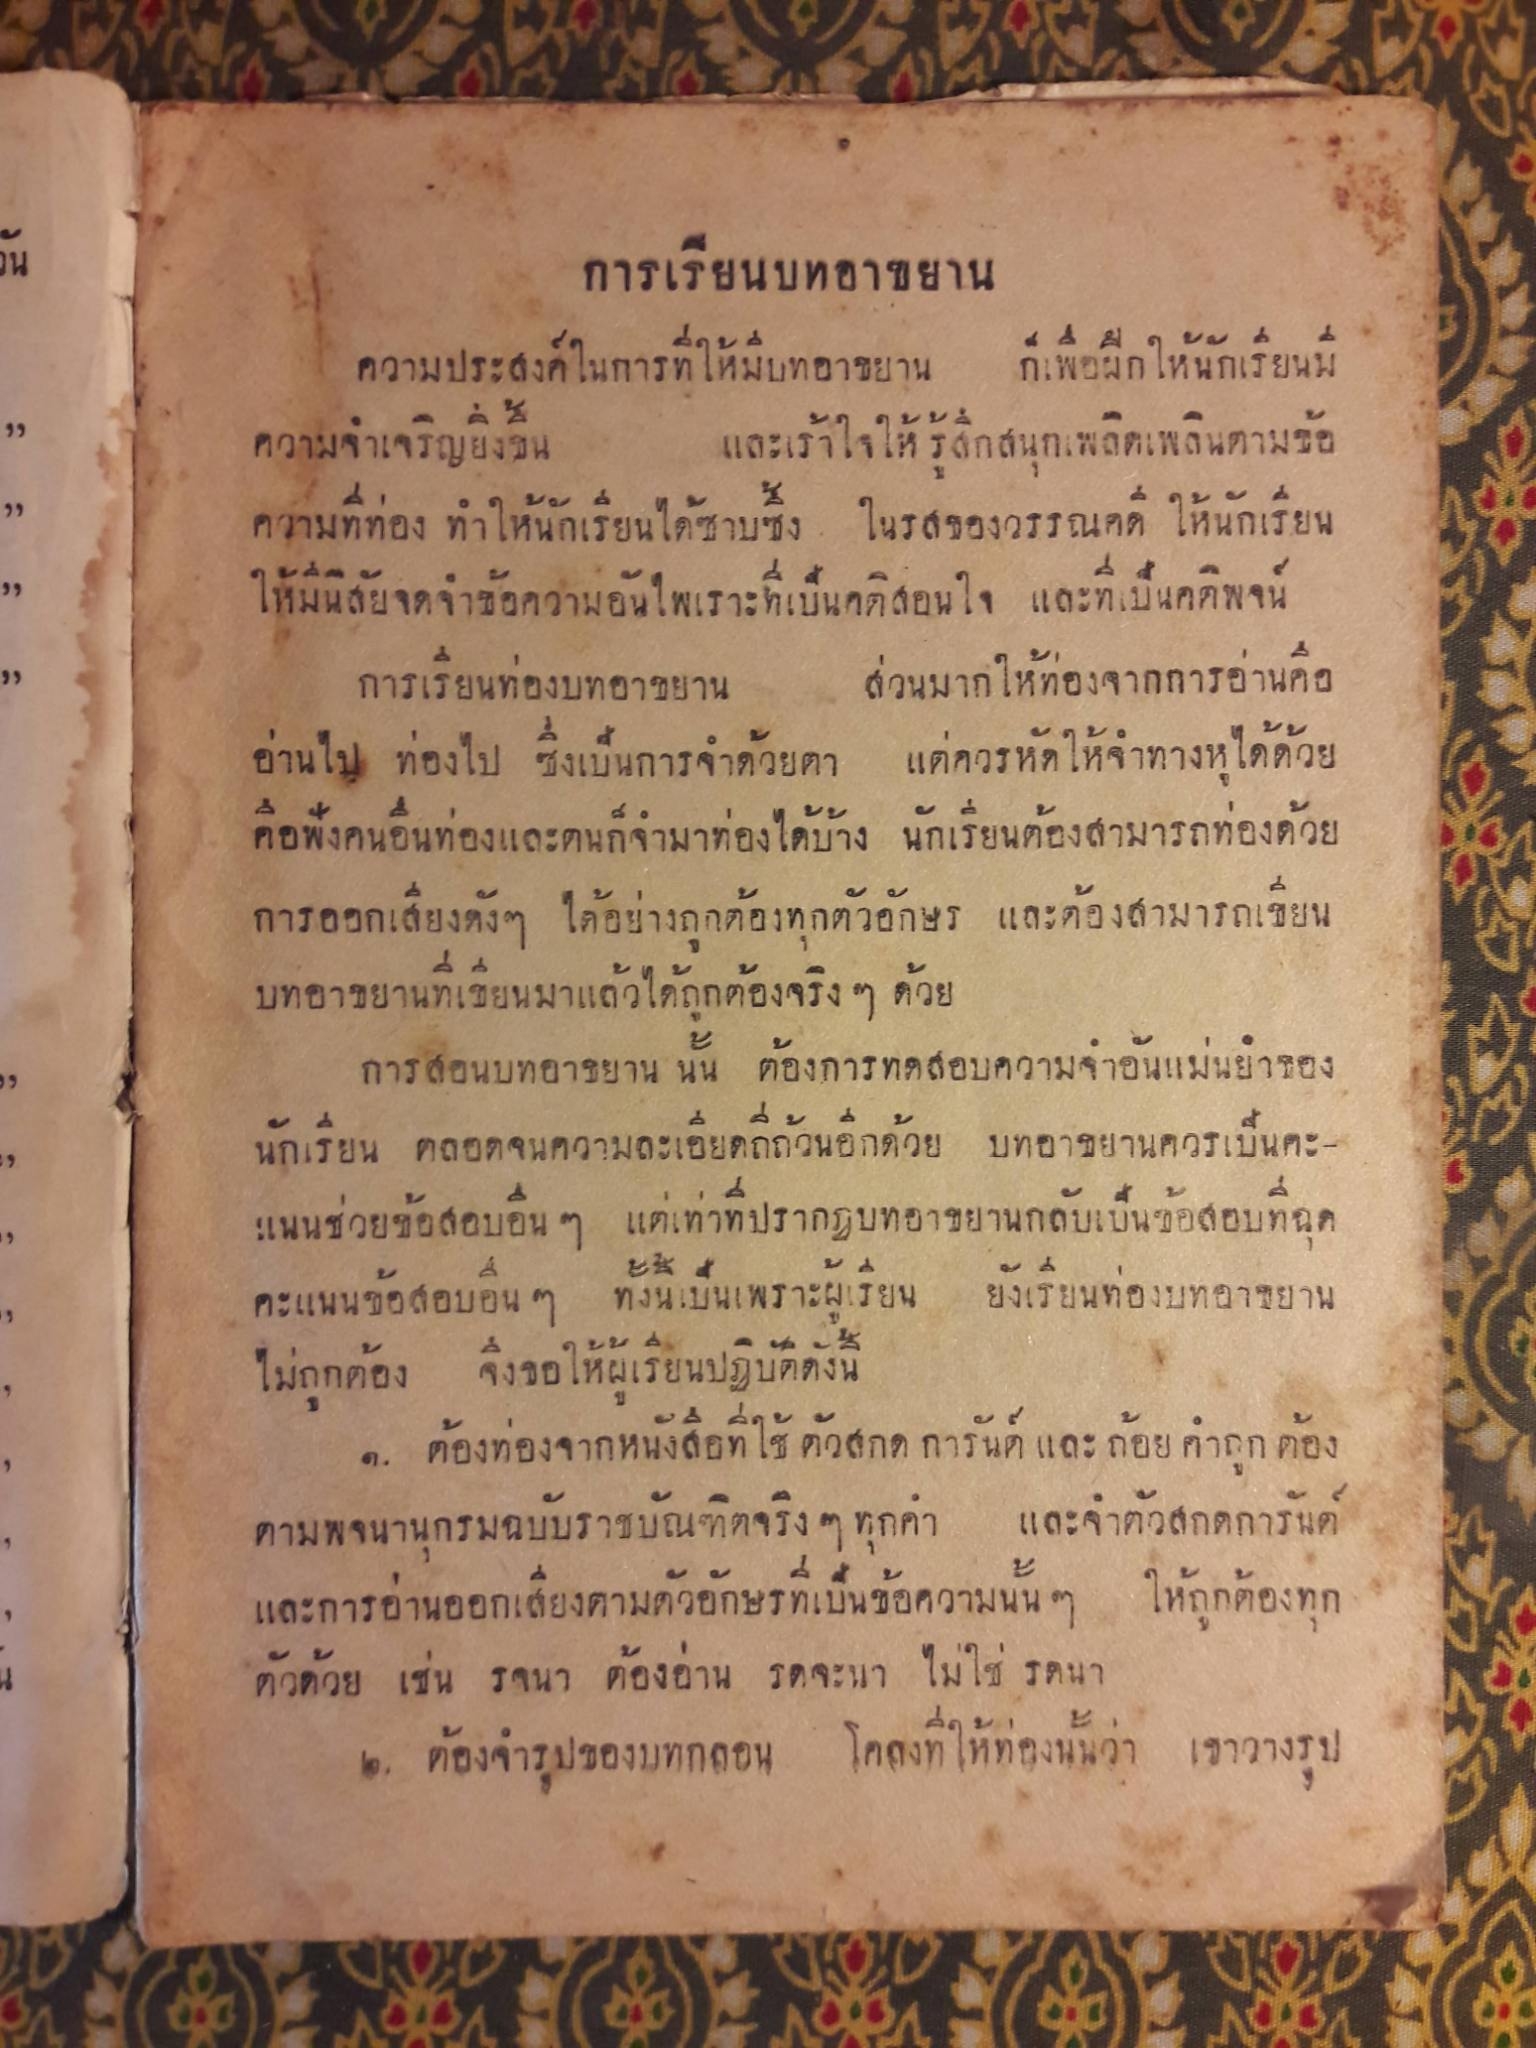 วัน
”
”
”
”
”
การเรียนบทอาขยาน
ความประสงค์ในการที่ให้มีบทอาขยาน ก็เพื่อฝึกให้นักเรียนมี
ความจำเจริญยิ่งขึ้น และเร้าใจให้รู้สึกสนุกเพลิดเพลินตามข้อ
ความที่ท่อง ทำให้นักเรียนได้ซาบซึ้ง ในรสของวรรณคดี ให้นักเรียน
ให้มีนิสัยจดจำข้อความอันไพเราะที่เป็นคติสอนใจ และที่เป็นคติพจน์
การเรียนท่องบทอาขยาน ส่วนมากให้ท่องจากการอ่านคือ
อ่านไป ท่องไป ซึ่งเป็นการจำด้วยตา แต่ควรหัดให้จำทางหูได้ด้วย
คือฟังคนอื่นท่องและตนก็จำมาท่องได้บ้าง นักเรียนต้องสามารถท่องด้วย
การออกเสียงดังๆ ได้อย่างถูกต้องทุกตัวอักษร และต้องสามารถเขียน
บทอาขยานที่เขียนมาแล้วได้ถูกต้องจริง ๆ ด้วย
การสอนบทอาขยาน นั้น ต้องการทดสอบความจำอันแม่นยำของ
นักเรียน ตลอดจนความละเอียดถี่ถ้วนอีกด้วย บทอาขยานควรเป็นคะ-
แนนช่วยข้อสอบอื่น ๆ แต่เท่าที่ปรากฏบทอาขยานกลับเป็นข้อสอบที่ฉุด
คะแนนข้อสอบอื่น ๆ ทั้งนี้เป็นเพราะผู้เรียน ยังเรียนท่องบทอาขยาน
ไม่ถูกต้อง จึงขอให้ผู้เรียนปฏิบัติดังนี้
๑. ต้องท่องจากหนังสือที่ใช้ ตัวสกด การันต์ และ ถ้อย คำถูก ต้อง
ตามพจนานุกรมฉบับราชบัณฑิตจริง ๆ ทุกคำ และจำตัวสกดการันต์
และการอ่านออกเสียงตามตัวอักษรที่เป็นข้อความนั้น ๆ ให้ถูกต้องทุก
ตัวด้วย เช่น รจนา ต้องอ่าน รดจะนา ไม่ใช่ รดนา
๒. ต้องจำรูปของบทกลอน โคลงที่ให้ท่องนั้นว่า เขาวางรูป